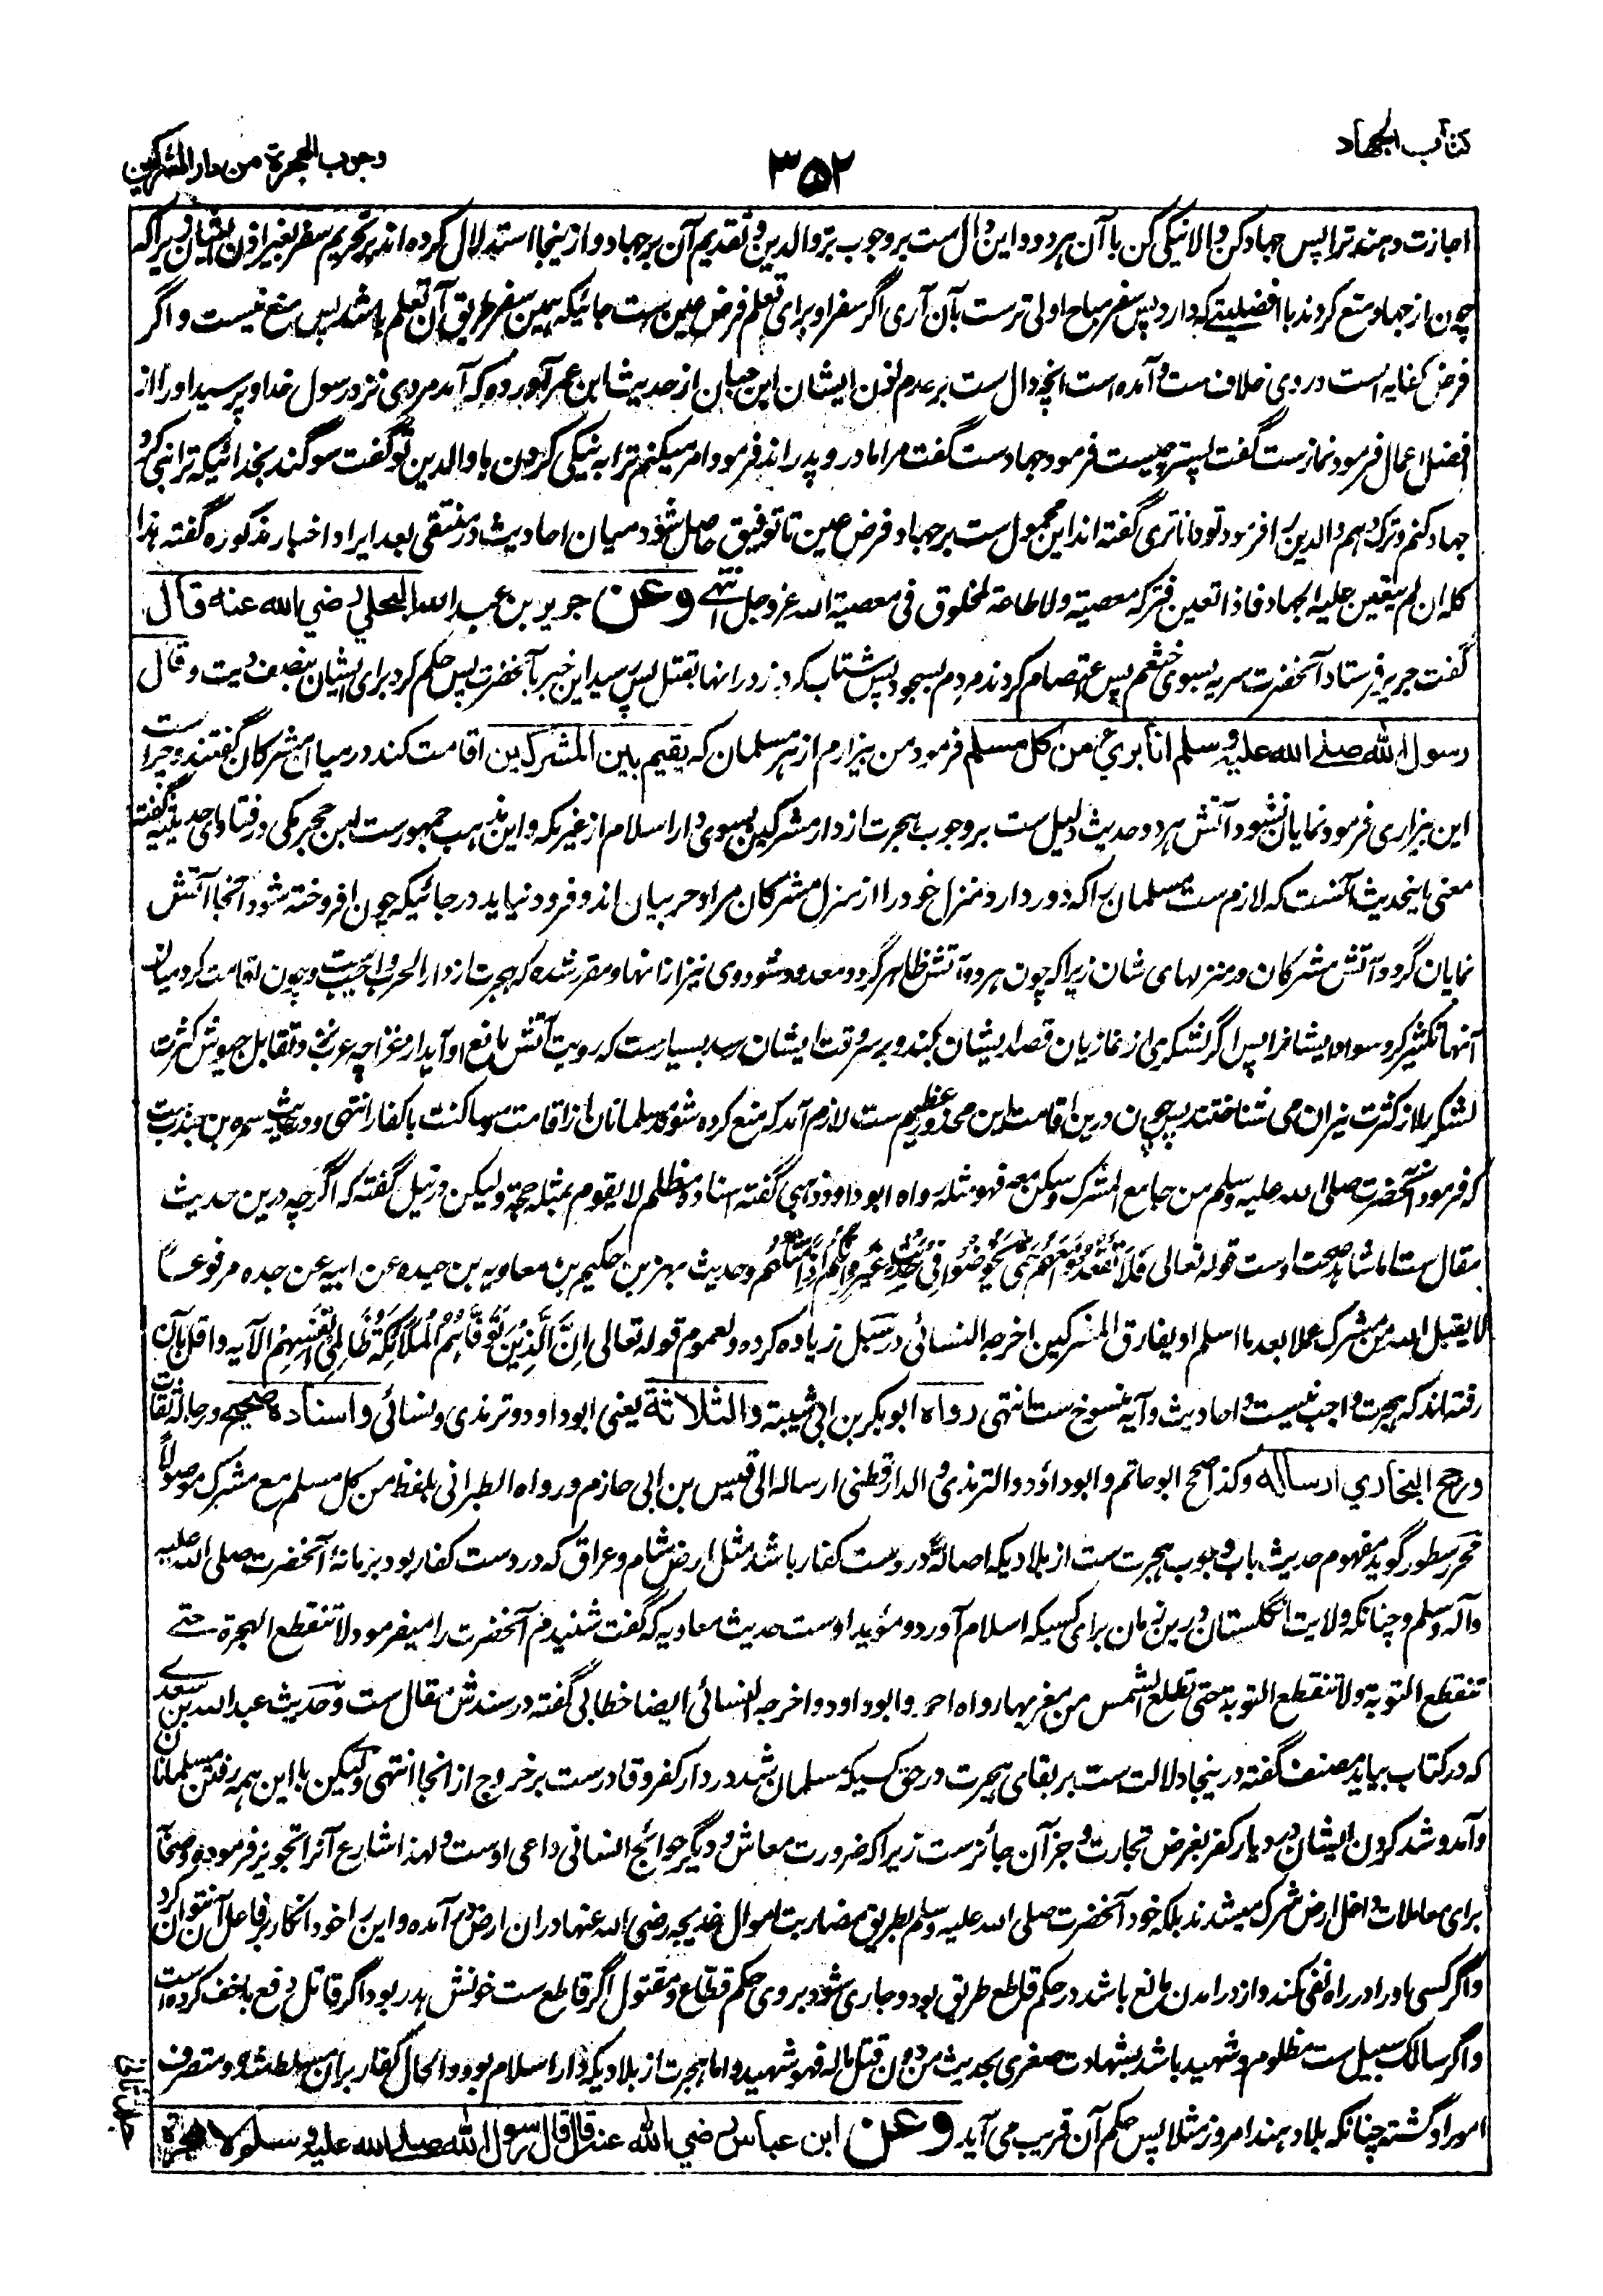 کتاب الجهاد
۳۵۲
وجوب الهجرة من دار المشرکین
اجازت دهند ترا پس جهاد کن والا نیکی کن با آن هر دو و این دال ست بر وجوب بر والدین و تقدیم آن بر جهاد و از ینجا استدلال کرده اند بر تحریم سفر بغیر اذن ایشان زیرا که
چون از جهاد منع کردند با افضلیتے که دارد پس سفر مباح اولی ترست بآن آری اگر سفر او برای تعلم فرض عین ست جائیکه همین سفر طریق آن تعلم باشد پس منع نیست و اگر
فرض کفایه است در وی خلاف ست و آمده است آنچه دال ست بر عدم اذن ایشان ابن حبان از حدیث ابن عمر آورده که آمد مردی نزد رسول خدا و پرسید او را از
افضل اعمال فرمود نمازست گفت پستر چیست فرمود جهادست گفت مرا مادر و پدر اند فرمود امر میکنم ترا به نیکی کردن با والدین تو گفت سوگند بخدائیکه ترا نبی کرد
جهاد کنم و ترک دهم والدین را فرمود تو دانا تری گفته اند این محمول ست بر جهاد فرض عین تا توفیق حاصل شود میان احادیث و در منتقی بعد ایراد اخبار مذکوره گفته هذا
کله ان لم یتعین علیه الجهاد فاذا تعین فترکه معصیة ولا طاعة لمخلوق فی معصیة الله عز و جل انتهے وعن جریر بن عبد الله البجلي رضي الله عنه قال
گفت جریر فرستاد آنحضرت سریه بسوی خثعم پس اعتصام کردند مردم بسجود پس شتاب کرده زد در انها بقتل پس رسید این خبر بآنحضرت پس حکم کرد برای ایشان بنصف دیت وقال
رسول الله صلے الله علیه وسلم انا بريء من کل مسلم فرمود من بیزارم از هر مسلمان که یقیم بین المشرکین اقامت کند در میان مشرکان گفتند و چرا ست
این بیزاری فرمود نمایان نشود آتش هر دو حدیث دلیل ست بر وجوب هجرت از دار مشرکین بسوی دار اسلام از غیر مکه و این مذهب جمهورست ابن حجر مکی در فتاوای حدیثیه گفته
معنی اینحدیث آنست که لازم ست مسلمان را که دور دارد منزل خود را از منزل مشرکان مراد حربیان اند و فرود نیاید در جائیکه چون افروخته شود آنجا آتش
نمایان گردد آتش مشرکان در منزلهای شان زیرا که چون هر دو آتش ظاهر گردد معدود شود وی نیز از انها و مقرر شده که هجرت از دار الحرب واجبست و چون اقامت کرد میان
آنها تکثیر کرد سواد ایشانرا پس اگر لشکری از غازیان قصد ایشان بکند و بر سر وقت ایشان رسد بسیارست که رویت آتش مانع او آید از غزا چه عرب در تقابل جیوش کثرت
لشکر را از کثرت نیران می شناختند پس چون درین اقامت این محذور عظیم ست لازم آمد که منع کرده شود مسلمانان را از اقامت و مساکنت با کفار انتهی و در حدیث سمره بن جندب ست
که فرمود آنحضرت صلی الله علیه وسلم من جامع المشرک وسکن معه فهو مثله رواه ابو داود ذهبی گفته اسناده مظلم لا یقوم بمثله حجة ولیکن در نیل گفته که اگرچه درین حدیث
مقال ست اما شاهد صحت اوست قوله تعالی فَلَا تَقْعُدُوا مَعَهُمْ حَتَّى يَخُوضُوا فِي حَدِيثٍ غَيْرِهِ إِنَّكُمْ إِذًا مِثْلُهُمْ و حدیث بهز بن حکیم بن معاویه بن حیده عن ابیه عن جده مرفوعاً
لا یقبل الله من مشرک عملا بعد ما اسلم او یفارق المشرکین اخرجه النسائی در سبل زیاده کرده و لعموم قوله تعالی اِنَّ الَّذِيْنَ تَوَفَّاهُمُ الْمَلَائِكَةُ ظَالِمِي اَنْفُسِهِمْ الآیه و اقل بآن
رفته اند که هجرت واجب نیست و احادیث و آیه منسوخ ست انتهی رواه ابو بکر بن ابی شیبة والثلاثة یعنی ابو داود و ترمذی و نسائی واسناده صحیح و رجاله ثقات
ورجح البخاري ارساله وکذا صحح ابو حاتم و ابو داؤد والترمذی والدارقطنی ارساله الی قیس بن ابی حازم ورواه الطبرانی بلفظ من کل مسلم مع مشرک موصولاً
محرر سطور گوید مفهوم حدیث باب وجوب هجرت ست از بلادیکه اصالةً در دست کفار باشد مثل ارض شام و عراق که در دست کفار بود بزمانهٔ آنحضرت صلی الله علیه
وآله وسلم و چنانکه ولایت انگلستان درین زمان برای کسیکه اسلام آورد و مؤید اوست حدیث معاویه که گفت شنیدم آنحضرت را میفرمود لا تنقطع الهجرة حتے
تنقطع التوبة ولا تنقطع التوبة حتی تطلع الشمس من مغربها رواه احمد و ابو داود و اخرجه النسائی ایضا خطابی گفته در سندش مقال ست و حدیث عبد الله بن سعدے
که در کتاب بیاید مصنف گفته در ینجا دلالت ست بر بقای هجرت در حق کسیکه مسلمان شد در دار کفر و قادرست بر خروج از انجا انتهی ولیکن با این همه رفتن مسلمانان
و آمد و شد کردن ایشان در دیار کفر بغرض تجارت و جز آن جائزست زیرا که ضرورت معاش و دیگر حوائج انسانی داعی اوست و لهذا شارع آنرا تجویز فرموده و صحابه
برای معاملات داخل ارض شرک میشدند بلکه خود آنحضرت صلی الله علیه وسلم بطریق مضاربت اموال خدیجه رضی الله عنها در ان ارض در آمده و این را خود انکار بر فاعل آن نتوان کرد
و اگر کسی او را در راه نفی کند و از درامدن مانع باشد در حکم قاطع طریق بود و جاری شود بر وی حکم قطّاع و مقتول اگر قاطع ست خونش هدر بود اگر قاتل دفع باخف کرده است
و اگر سالک سبیل ست مظلوم و شهید باشد بشهادت صغری بحدیث من دون قتل ماله فهو شهید و اما هجرت از بلادیکه دار اسلام بود و الحال کفار بران مسلط شده و متصرف
امور او گشته چنانکه بلاد هند امروز مثلا پس حکم آن قریب می آید وعن ابن عباس رضي الله عنه قال قال رسول الله صلے الله علیه وسلم لا هجرة